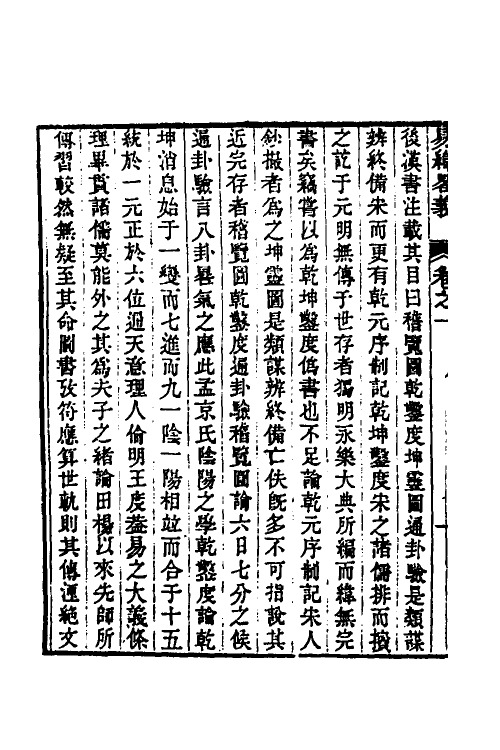 易緯畧義　卷之一
後漢書注載其目曰稽覽圖乾鑿度坤靈圖通卦驗是類謀
辨終備宋而更有乾元序制記乾坤鑿度宋之諸儒排而擯
之訖于元明無傳于世存者獨明永樂大典所編而緯無完
書矣竊嘗以為乾坤鑿度偽書也不足論乾元序制記宋人
鈔撮者為之坤靈圖是類謀辨終備亡佚旣多不可指說其
近完存者稽覽圖乾鑿度通卦驗稽覽圖論六日七分之候
通卦驗言八卦晷氣之應此孟京氏陰陽之學乾鑿度論乾
坤消息始于一變而七進而九一陰一陽相竝而合于十五
統於一元正於六位通天意理人倫明王度葢易之大義條
理畢貫諸儒莫能外之其為夫子之緒論田楊以來先師所
傳習較然無疑至其命圖書攷符應算世軌則其傳湮絶文